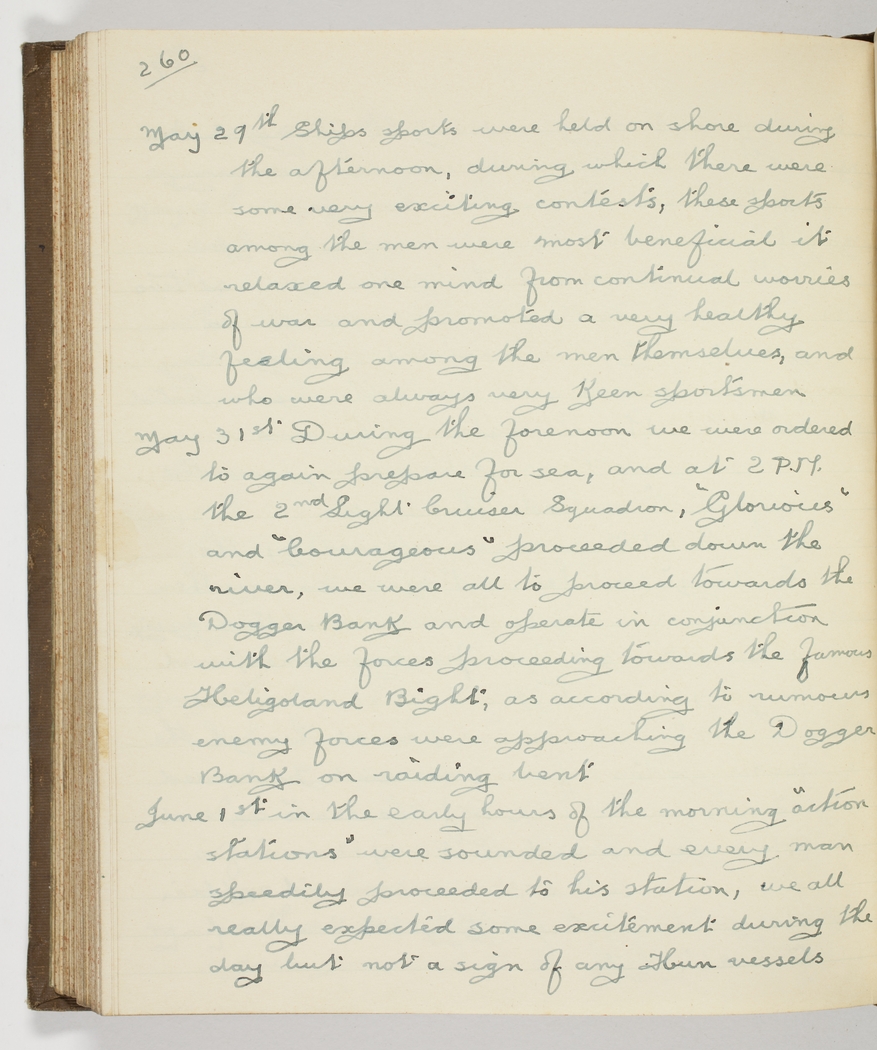 260
May 29th Ships sports were held on shore during
the afternoon, during which there were
some very exciting contests, these sports
among the men were most beneficial it
relaxed one mind from continual worries
of war and promoted a very healthy
feeling among the men themselves, and
who were always very keen sportsmen
May 31st During the forenoon we were ordered
to again prepare for sea, and at 2 P.M.
the 2nd Light Cruiser Squadron, "Glorious"
and "Courageous" proceeded down the
river, we were all to proceed towards the
Dogger Bank and operate in conjunction
with the forces proceeding towards the famous
Heligoland Bight, as according to rumours
enemy forces were approaching the Dogger
Bank on raiding bent
June 1st in the early hours of the morning "action
stations" were sounded and every man
speedily proceeded to his station, we all
really expected some excitement during the
day but not a sign of any Hun vessels